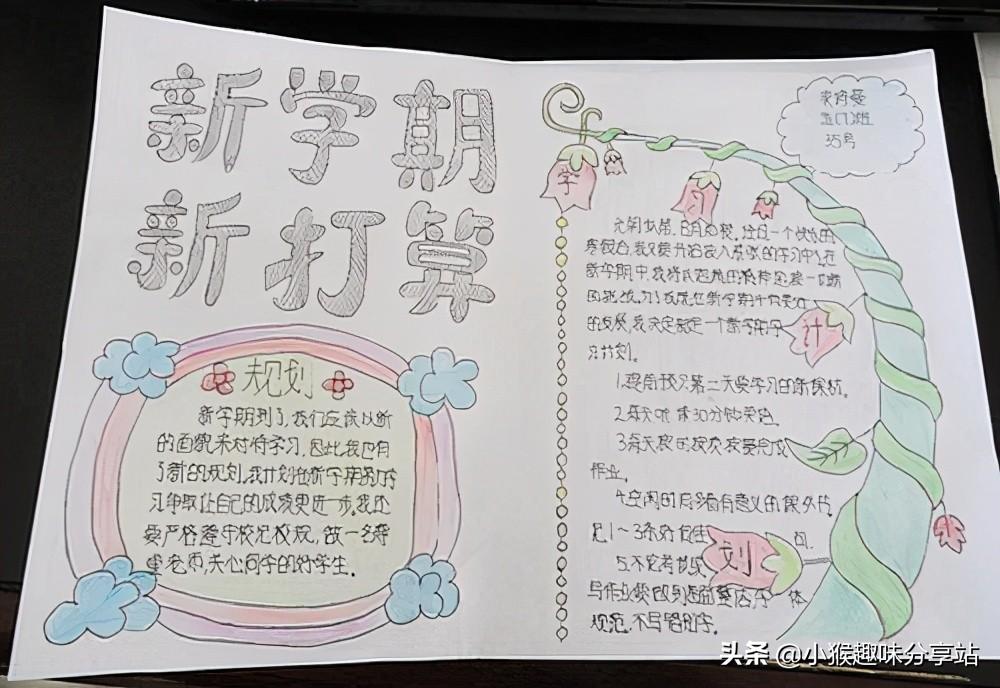 新学期
新打算
规划
新学期到了,我们应该以新
的面貌来对待学习,因此,我也有
了新的规划,我计划在新学期努力学
习,争取让自己的成绩更进一步,我还
要严格遵守校纪校规,做一名尊
重老师,关心同学的好学生.
35号
学
习
计
划
元旦,过一个快乐的
寒假后,我又要开始进入紧张的学习中,在
新学期中,我将以迎接一切新
的挑战,为了我能在新学期中
的发展,我决定制定一个新学期学
习计划。
1.提前预习第二天要学习的新课文。
2.每天听读30分钟英语
3.每天按时按次按量完成
作业。
4.空闲时间多看有意义的课外书
1~3
5.不
写作业要做到字体
规范,不写错别字。
头条 @小猴趣味分享站